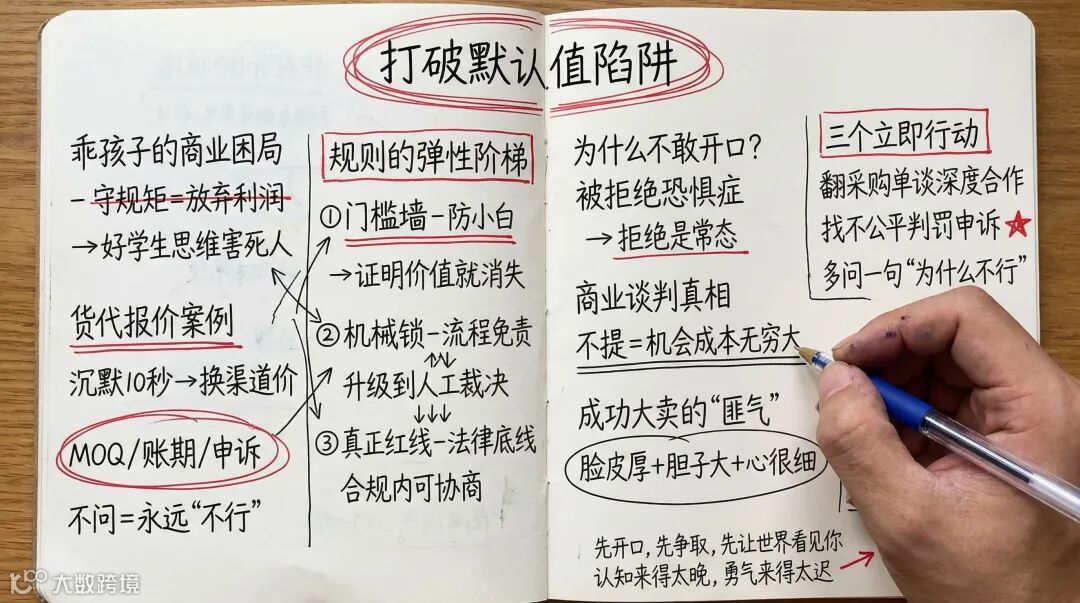 打破默认值陷阱
乖孩子的商业困局
- 守规矩=放弃利润
→好学生思维害死人
货代报价案例
沉默10秒→换渠道价
MOQ/账期/申诉
不问=永远“不行”
规则的弹性阶梯
①门槛墙-防小白
→证明价值就消失
②机械锁-流程免责
升级到人工裁决
↓↓↓
③真正红线-法律底线
合规内可协商
为什么不敢开口?
被拒绝恐惧症
→拒绝是常态
商业谈判真相
不提=机会成本无穷大
成功大卖的“匪气”
脸皮厚+胆子大+心很细
先开口,先争取,先让世界看见你
认知来得太晚,勇气来得太迟
三个立即行动
翻采购单谈深度合作
找不公平判罚申诉
多问一句“为什么不行”
大数跨境